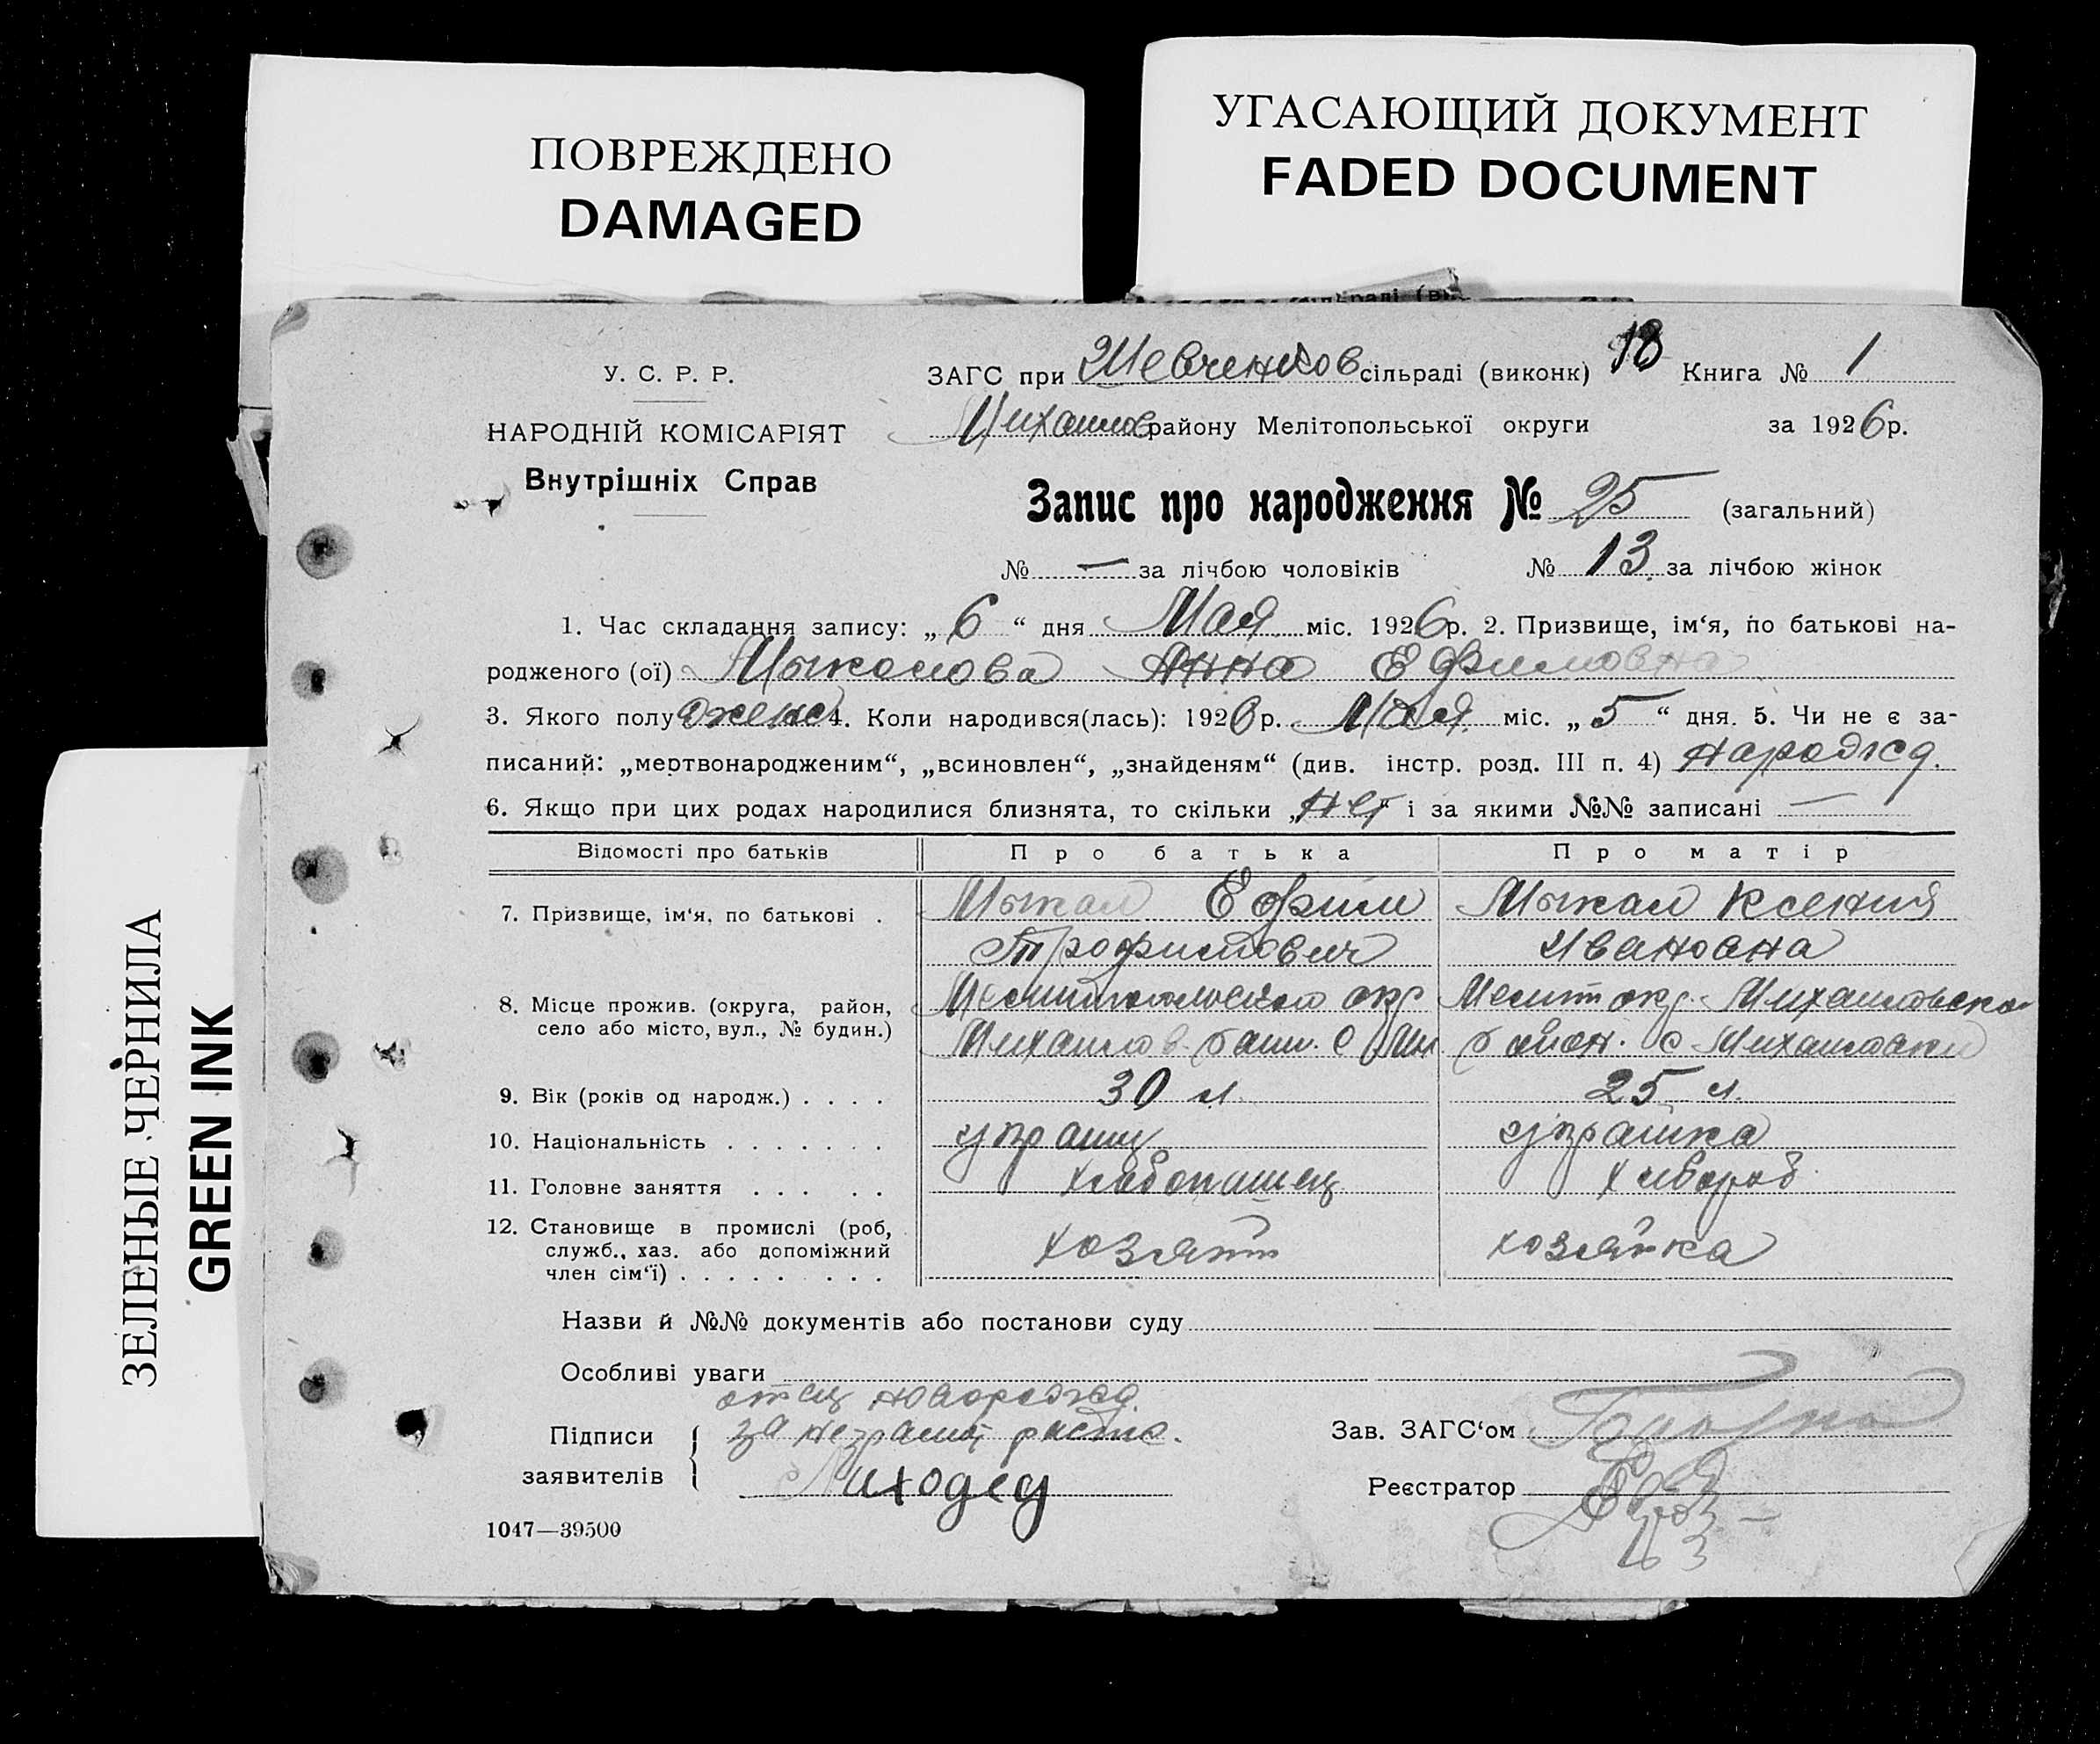 ПОВРЕЖДЕНО
DAMAGED
УГАСАЮЩИЙ ДОКУМЕНТ
FADED DOCUMENT
ЗЕЛЕНЫЕ ЧЕРНИЛА
GREEN INK
У. С. Р. Р.
НАРОДНІЙ КОМІСАРІЯТ
Внутрішніх Справ
ЗАГС при Шевченков сільраді (виконк) 18 Книга № 1
Михайлов району Мелітопольської округи за 1926 р.
Запис про народження № 25 (загальний)
№ — за лічбою чоловіків № 13 за лічбою жінок
1. Час складання запису: „ 6 “ дня Мая міс. 1926 р. 2. Призвище, ім‘я, по батькові на-
родженого (ої) Анна Ефимовна
3. Якого полу женс 4. Коли народився(лась): 1926 р. Мая міс. „ 5 “ дня. 5. Чи не є за-
писаний: „мертвонародженим“, „всиновлен“, „знайденям“ (див. інстр. розд. III п. 4) народжд.
6. Якщо при цих родах народилися близнята, то скільки „ нет “ і за якими №№ записані —
Відомості про батьків Про батька Про матір
7. Призвище, ім‘я, по батькові . Ефим Ксения
Трофимович Ивановна
8. Місце прожив. (округа, район, Мелитопольской окр Мелит окр. Михайловско
село або місто, вул., № будин.) Михайлов с с Михайловки
9. Вік (років од народж.) . . . . 30 л. 25 л.
10. Національність . . . . . . . украин украинка
11. Головне заняття . . . . . хлебопашец хлебороб
12. Становище в промислі (роб, хозяин хозяйка
служб., хаз. або допоміжний
член сім‘ї) . . . . . . . . .
Назви й №№ документів або постанови суду
Особливі уваги
отец
Підписи за неграмот распис.
заявителів Лиходед
Зав. ЗАГС‘ом
Реєстратор
1047—39500